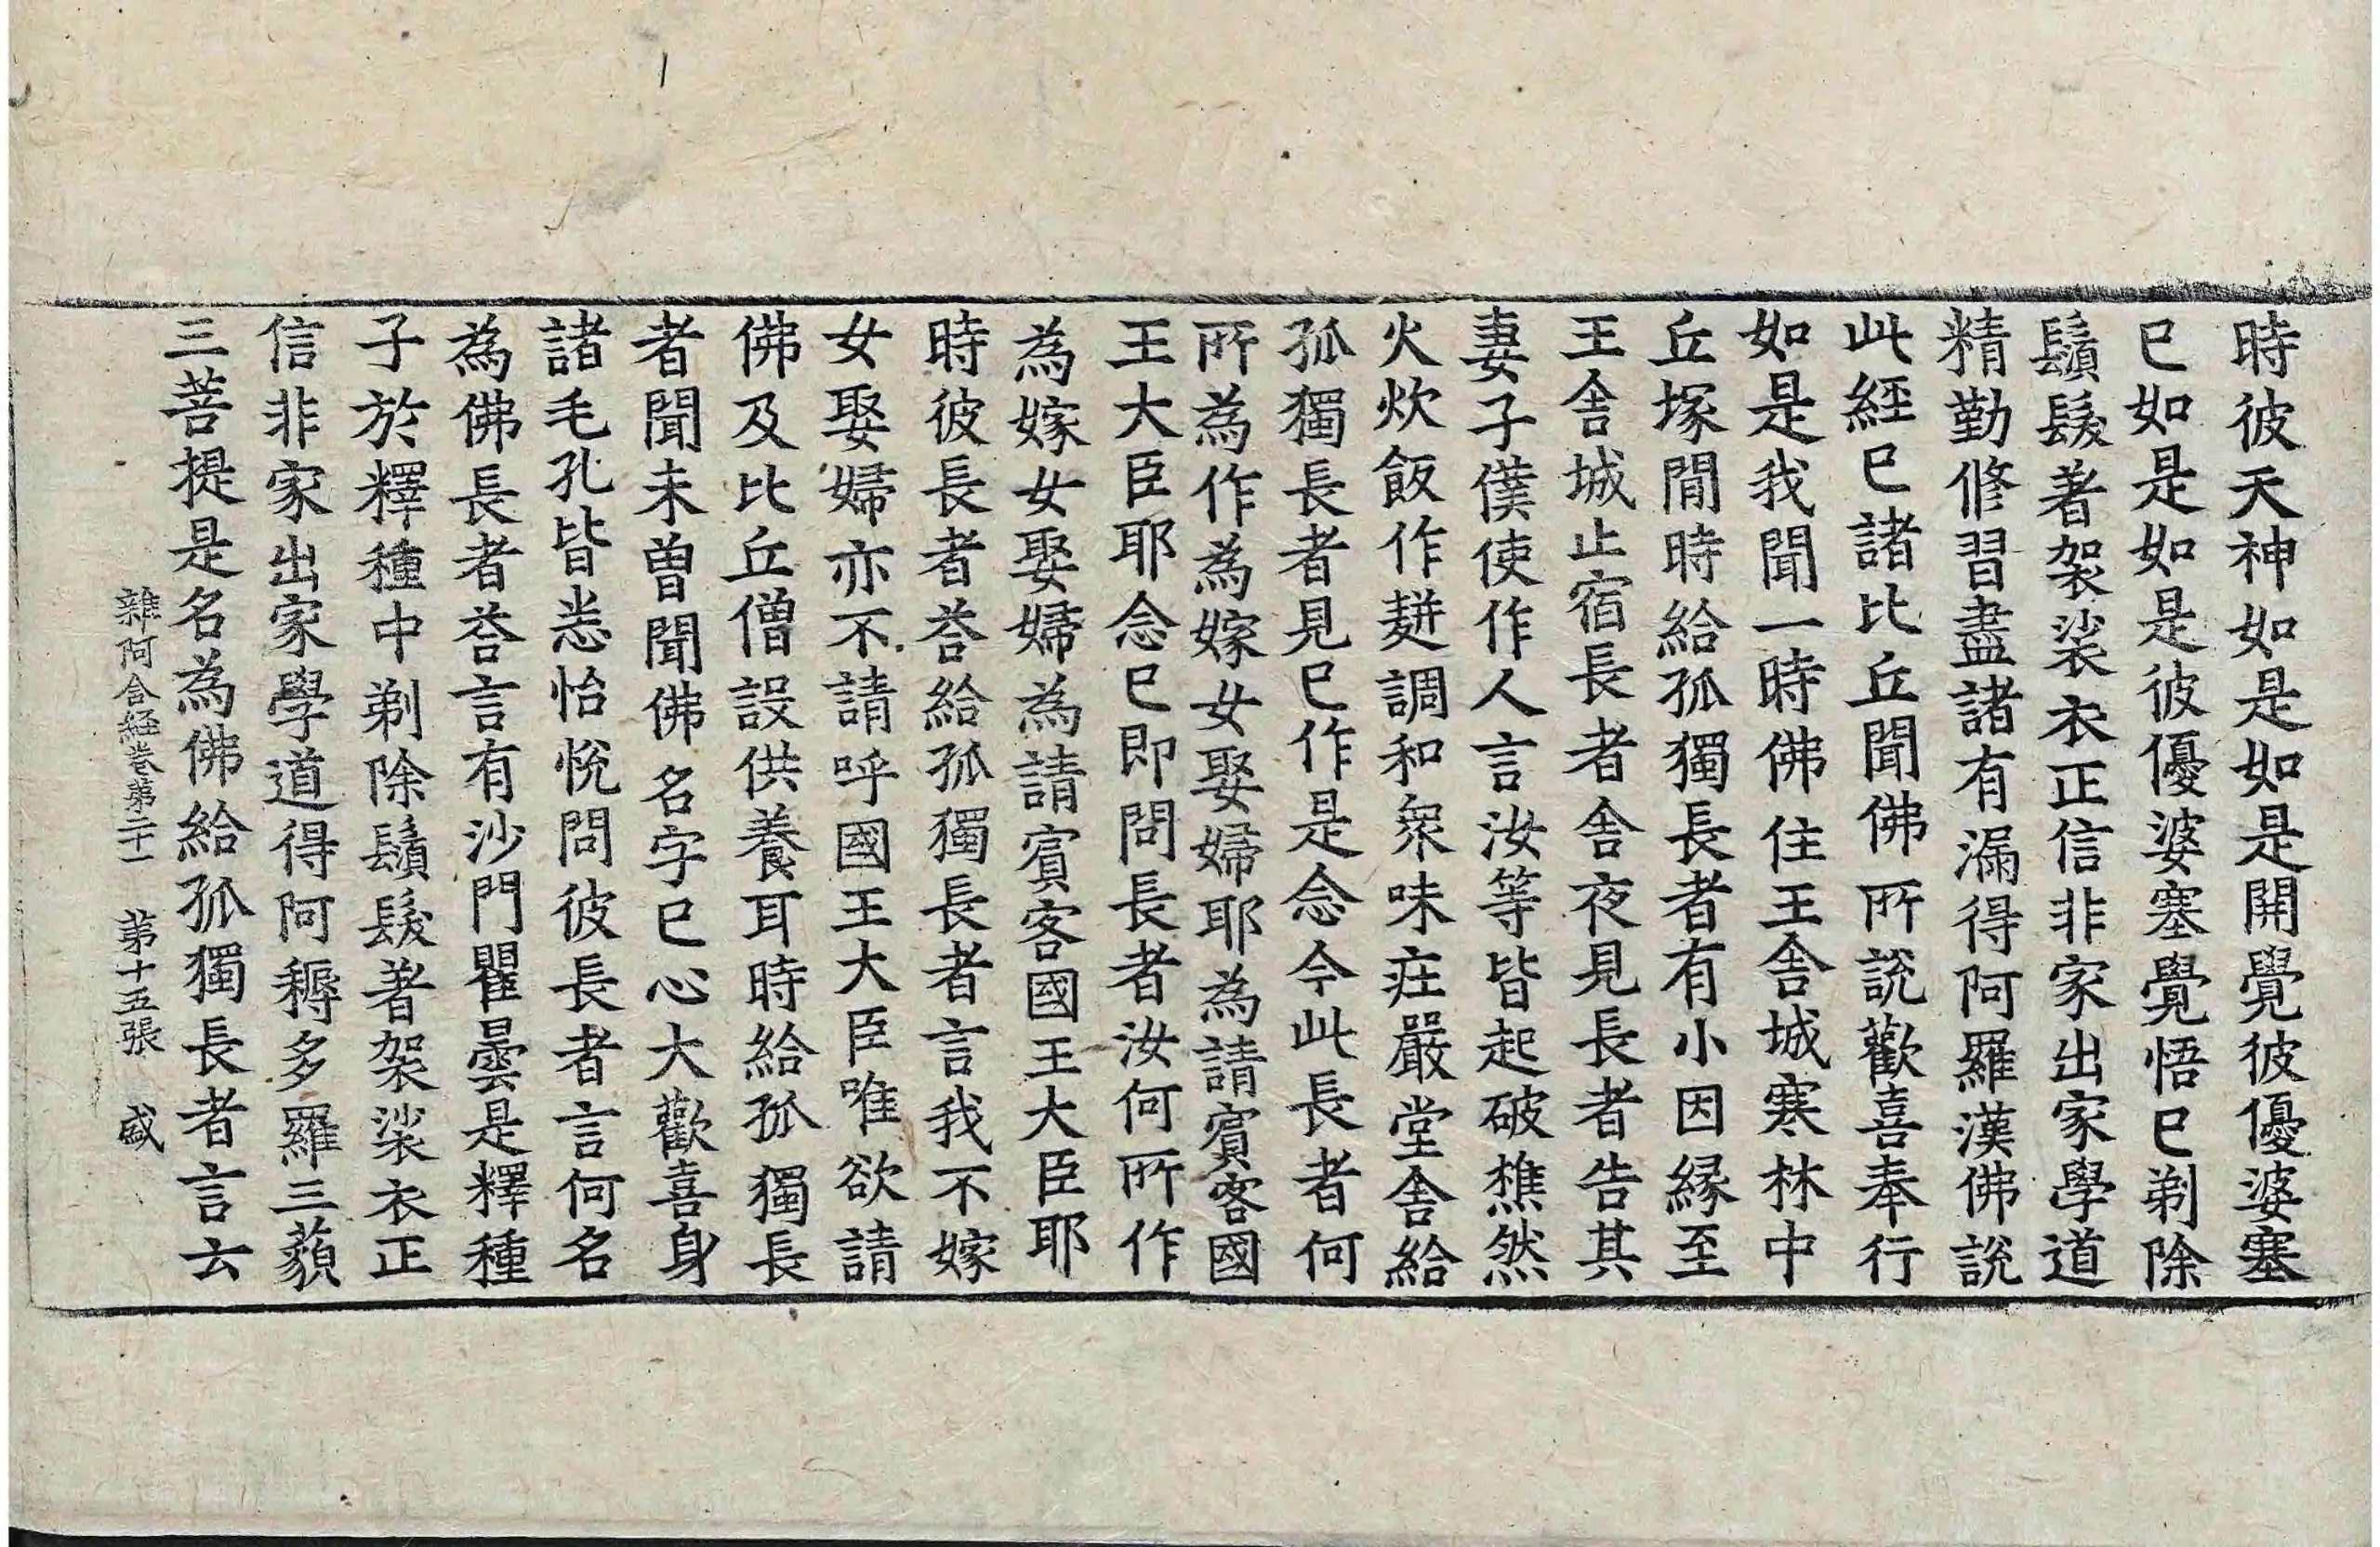 時彼天神如是如是開覺彼優婆塞
已如是如是彼優婆塞覺悟已剃除
鬚髮著袈裟衣正信非家出家學道
精勤修習盡諸有漏得阿羅漢佛說
此經已諸比丘聞佛所說歡喜奉行
如是我聞一時佛住王舍城寒林中
丘塚閒時給孤獨長者有小因緣至
王舍城止宿長者舍夜見長者告其
妻子僕使作人言汝等皆起破樵然
火炊飯作䴵調和衆味莊嚴堂舍給
孤獨長者見已作是念今此長者何
所為作為嫁女娶婦耶為請賓客國
王大臣耶念已即問長者汝何所作
為嫁女娶婦為請賓客國王大臣耶
時彼長者荅給孤獨長者言我不嫁
女娶婦亦不請呼國王大臣唯欲請
佛及比丘僧設供養耳時給孤獨長
者聞未曾聞佛名字已心大歡喜身
諸毛孔皆悉怡悅問彼長者言何名
為佛長者荅言有沙門瞿曇是釋種
子於釋種中剃除鬚髮著袈裟衣正
信非家出家學道得阿耨多羅三藐
三菩提是名為佛給孤獨長者言云
雜阿含經卷第二十一 第十五張 盛